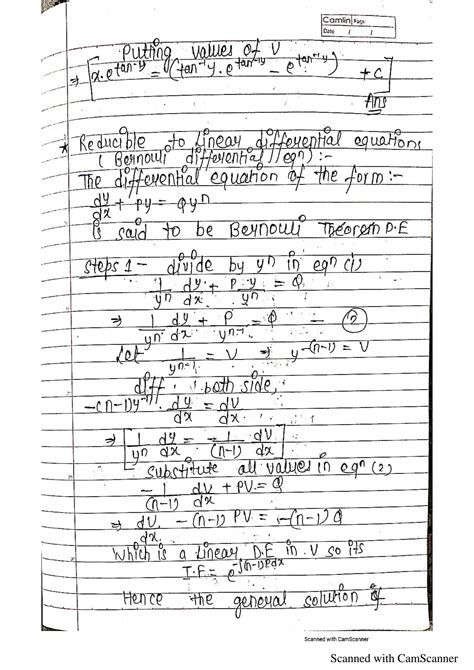 Camlin Page
Date / /
Putting values of V
⇒ [x.e^tan⁻¹y = (tan⁻¹y.e^tan⁻¹y - e^tan⁻¹y) + c]
Ans
* Reducible to Linear differential equations
( Bernouli differential eqn) :-
The differential equation of the form:-
dy/dx + Py = Qyⁿ
is said to be Bernouli Theorem D.E
Steps 1 - divide by yⁿ in eqn (1)
1/yⁿ dy/dx + P y/yⁿ = Q
⇒ 1/yⁿ dy/dx + P/yⁿ⁻¹ = Q - (2)
Let 1/yⁿ⁻¹ = V ⇒ y^-(n-1) = V
diff. both side,
-(n-1)y⁻ⁿ dy/dx = dV/dx
⇒ [1/yⁿ dy/dx = -1/(n-1) dV/dx]
substitute all values in eqn (2)
-1/(n-1) dV/dx + PV = Q
⇒ dV/dx - (n-1) PV = -(n-1) Q
Which is a Linear D.E in V so its
I.F = e^-∫(n-1)Pdx
Hence the general solution of
Scanned with CamScanner
Scanned with CamScanner